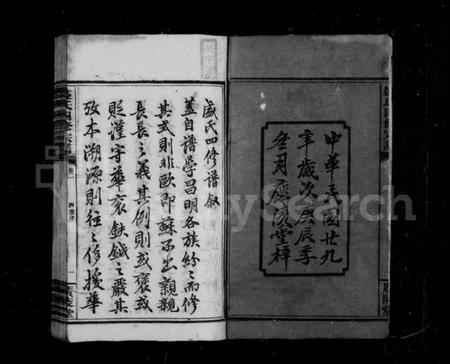 中華民國廿九
年歲次庚辰季
冬月廣陵堂梓
盛氏四修譜敘
蓋自譜學昌明各族紛紛而修
其式則非歐即蘇不出親親
長長之義其例則或褒或
貶謹字華袞鈇鉞之嚴其
攷本溯源則往往修援華
MySearch